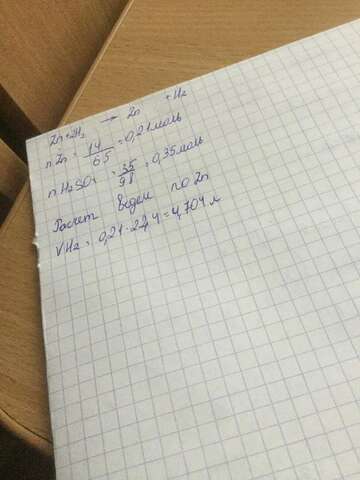 Zn+2H₂ → Zn +H₂
nZn = 14/65 = 0,21 моль
nH₂SO₄ = 35/98 = 0,35 моль
Расчет ведем по Zn
VH₂ = 0,21 · 22,4 = 4,704 л